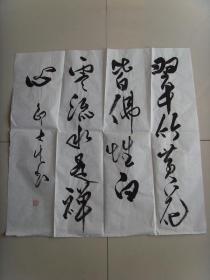 翠竹黄花
皆佛性白
云流水是禅
心